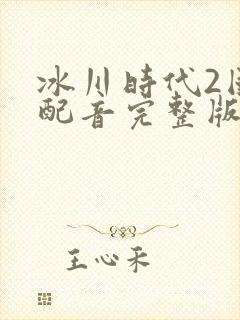 冰川時代2
配音完整版
王心采